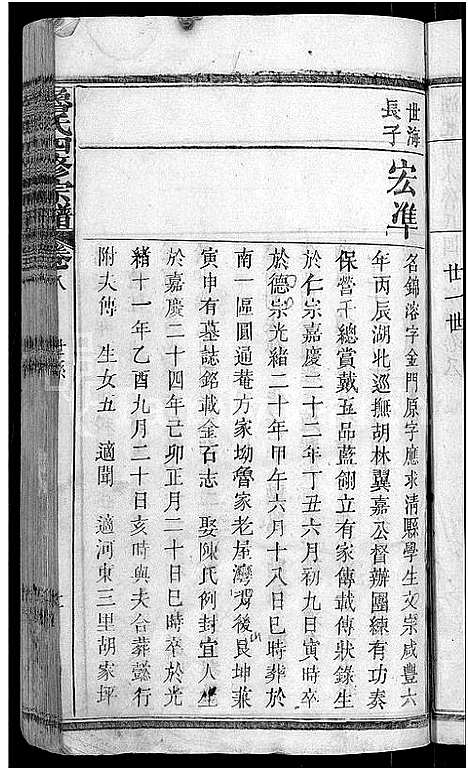 世海
長子
宏準
名錦溶字金門原字應求清縣學生文宗咸豐六
年丙辰湖北巡撫胡林翼嘉公督辦團練有功奏
保營千總賞戴五品藍翎立有家傳載傳狀錄生
於仁宗嘉慶二十二年丁丑六月初九日寅時卒
於德宗光緒二十年甲午六月十八日巳時葬於
南一區圓通菴方家坳魯家老屋灣屋後艮山坤兼
寅申有墓誌銘載金石志 娶陳氏例封宜人生
於嘉慶二十四年己卯正月二十日巳時卒於光
緒十一年乙酉九月二十日亥時與夫合葬懿行
附夫傳 生女五 適聞 適河東三里胡家坪
氏四修宗譜
卷八 世系
廿一世